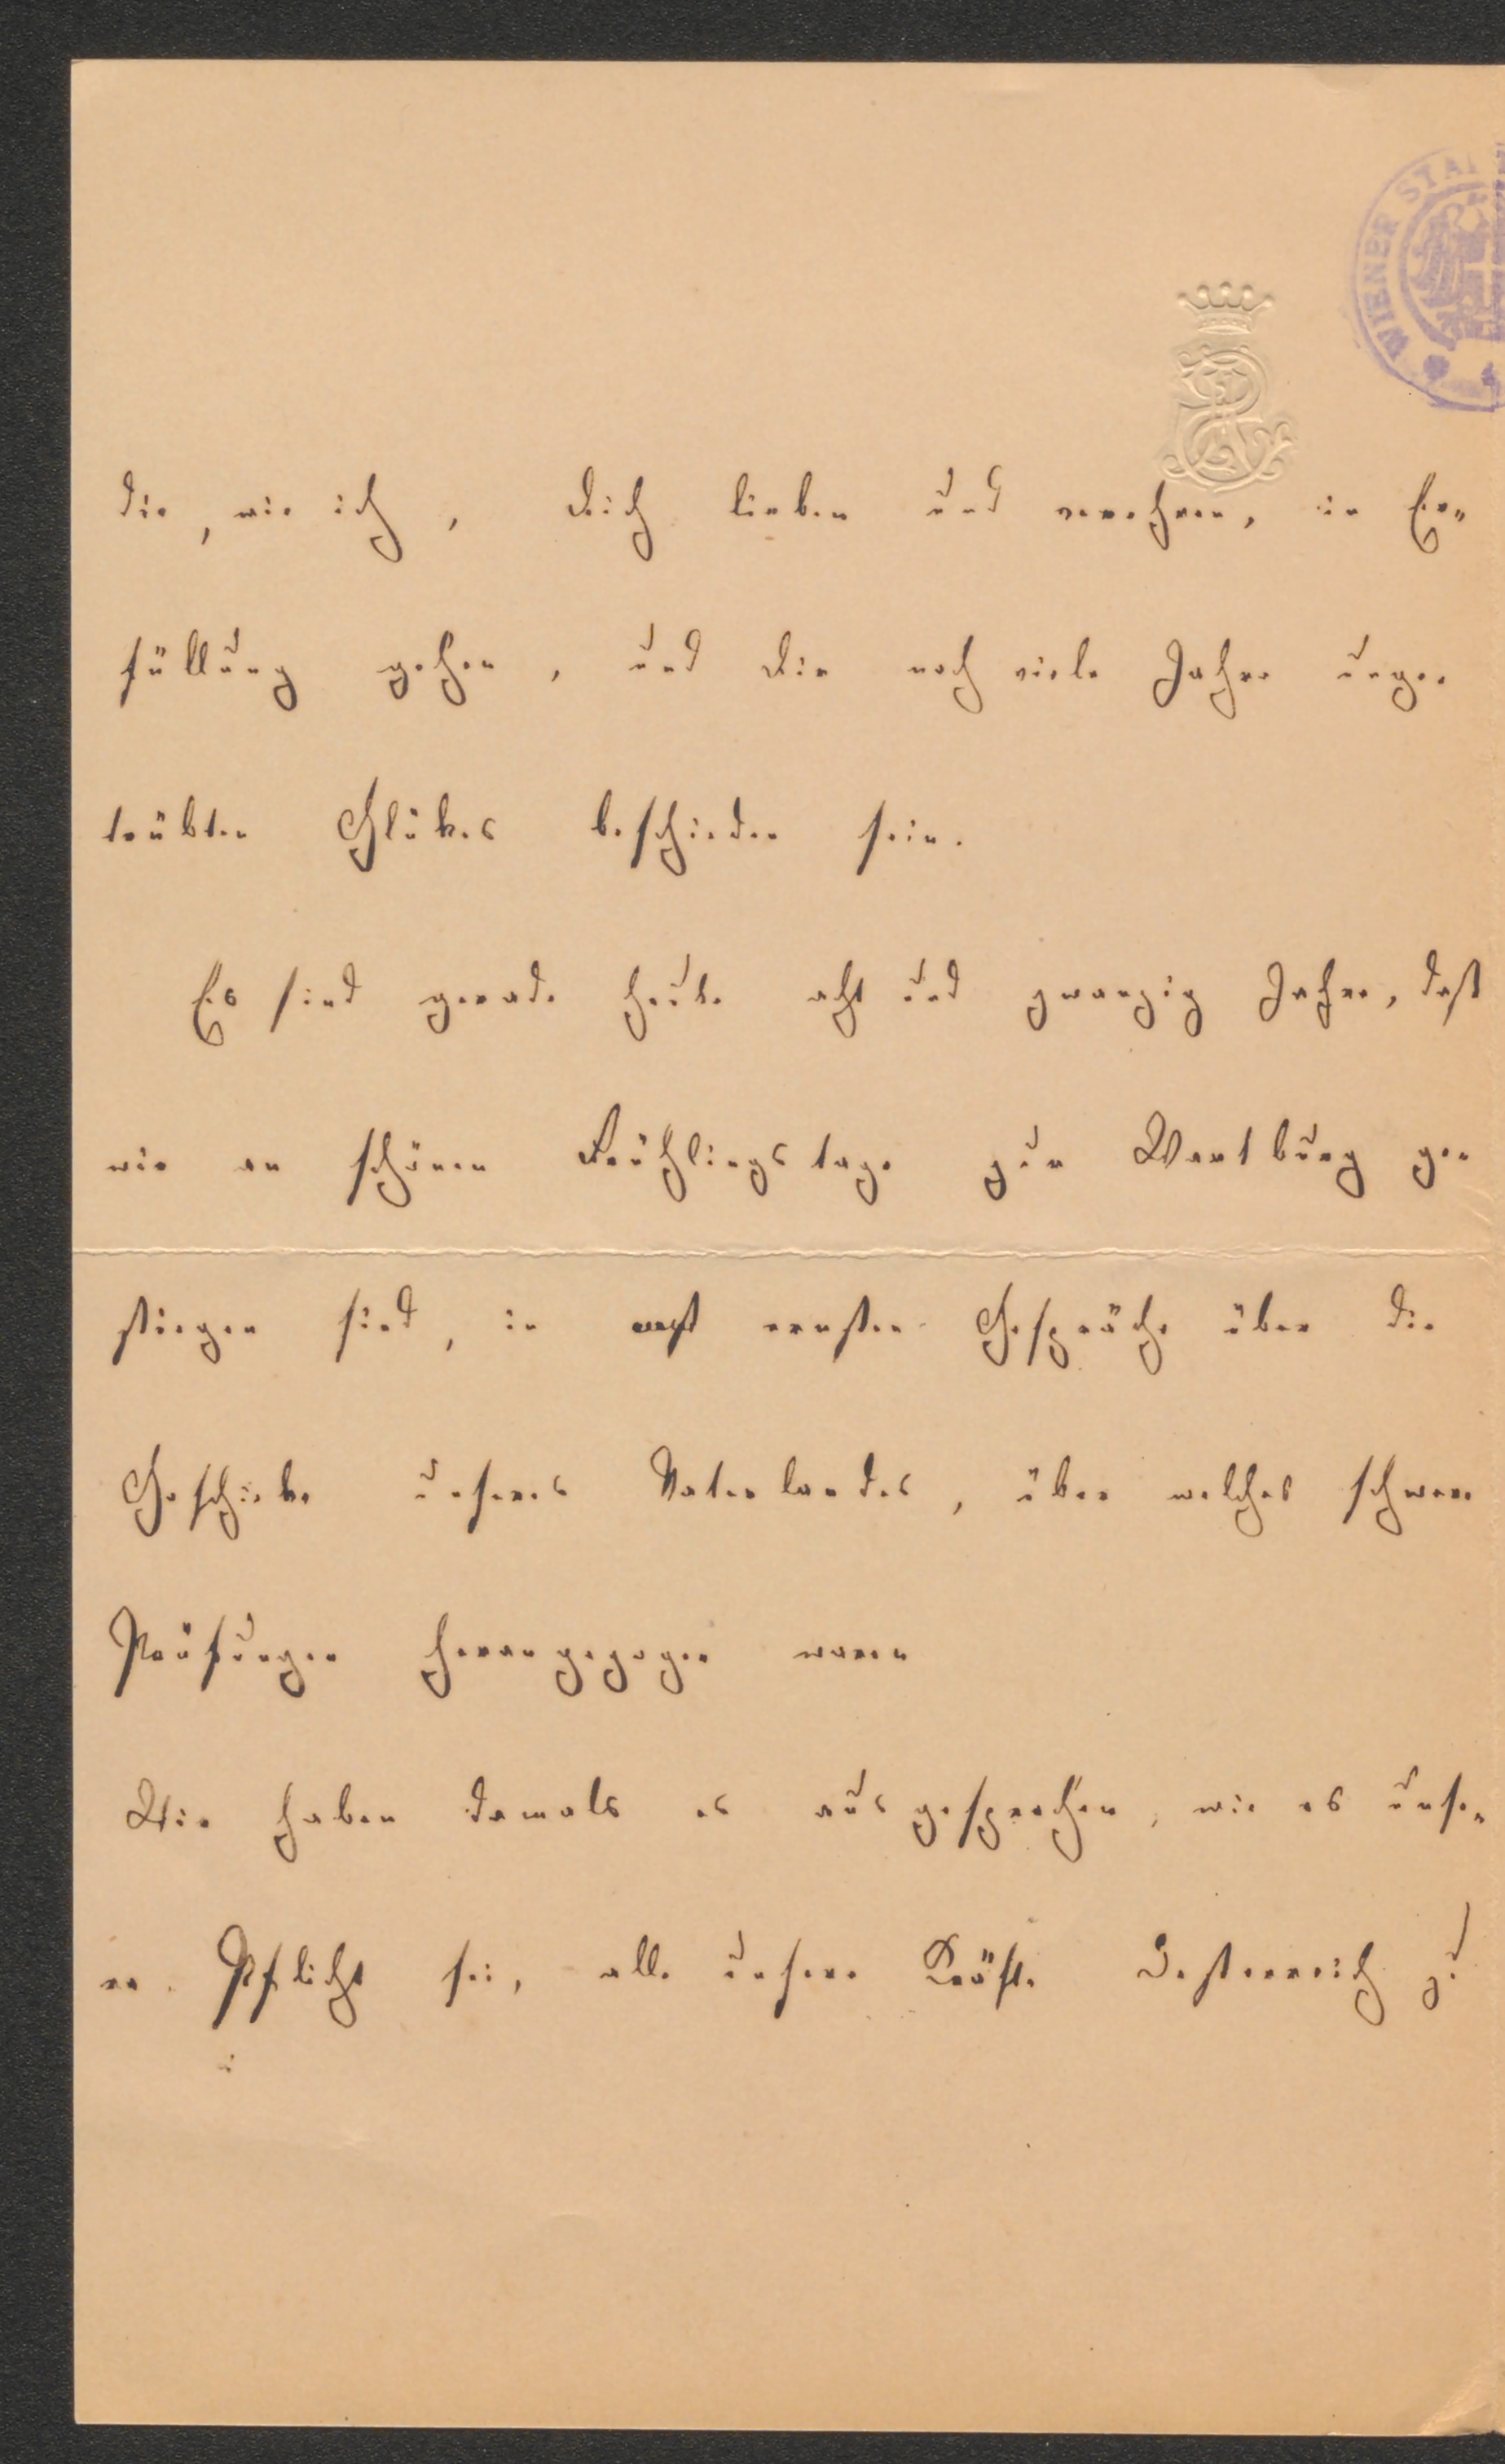 WIENER STA
die, wie ich, Dich lieben und verehren, in Er„
füllung gehen, und Dir noch viele Jahre unge„
trübten Glükes beschieden sein.
Es sind gerade heute acht und zwanzig Jahre, daß
wir an schönen Frühlingstage zur Wartburg ge„
stiegen sind, in ernsten Gespräche über die
Geschicke unseres Vaterlandes, über welches schwere
Prüfungen herangezogen waren
Wir haben damals es ausgesprochen, wie es unse„
re Pflicht sei, alle unsere Kräfte Oesterreich zu